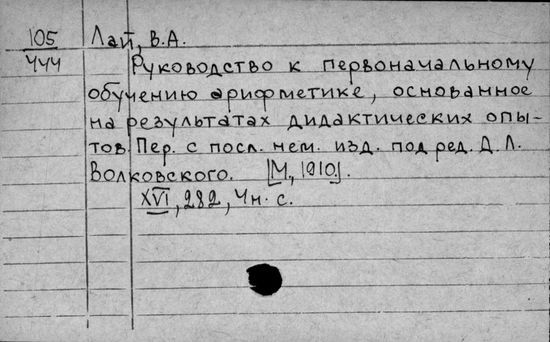 105 Лай, В.А.
444 Руководство к первоначальному
обучению арифметике, основанное
на результатах дидактических опы-
тов. Пер. с посл. нем. изд. под ред. Д. Л.
Волковского. [М, 1910].
XVI, 282, 4н. с.